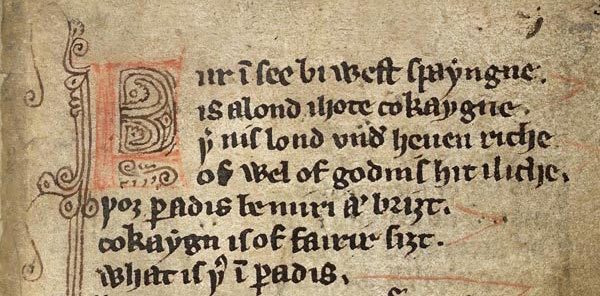 Fur ī see bi west spaẏngne.
is a lond ihote cokaẏgne.
þ͛ nis lond vnd͛ heuen riche
of wel of godnis hit iliche.
þoȝ ꝑadis be miri ⁊ briȝt.
cokaẏgn is of fairir siȝt.
what is þ͛ ī ꝑadis.